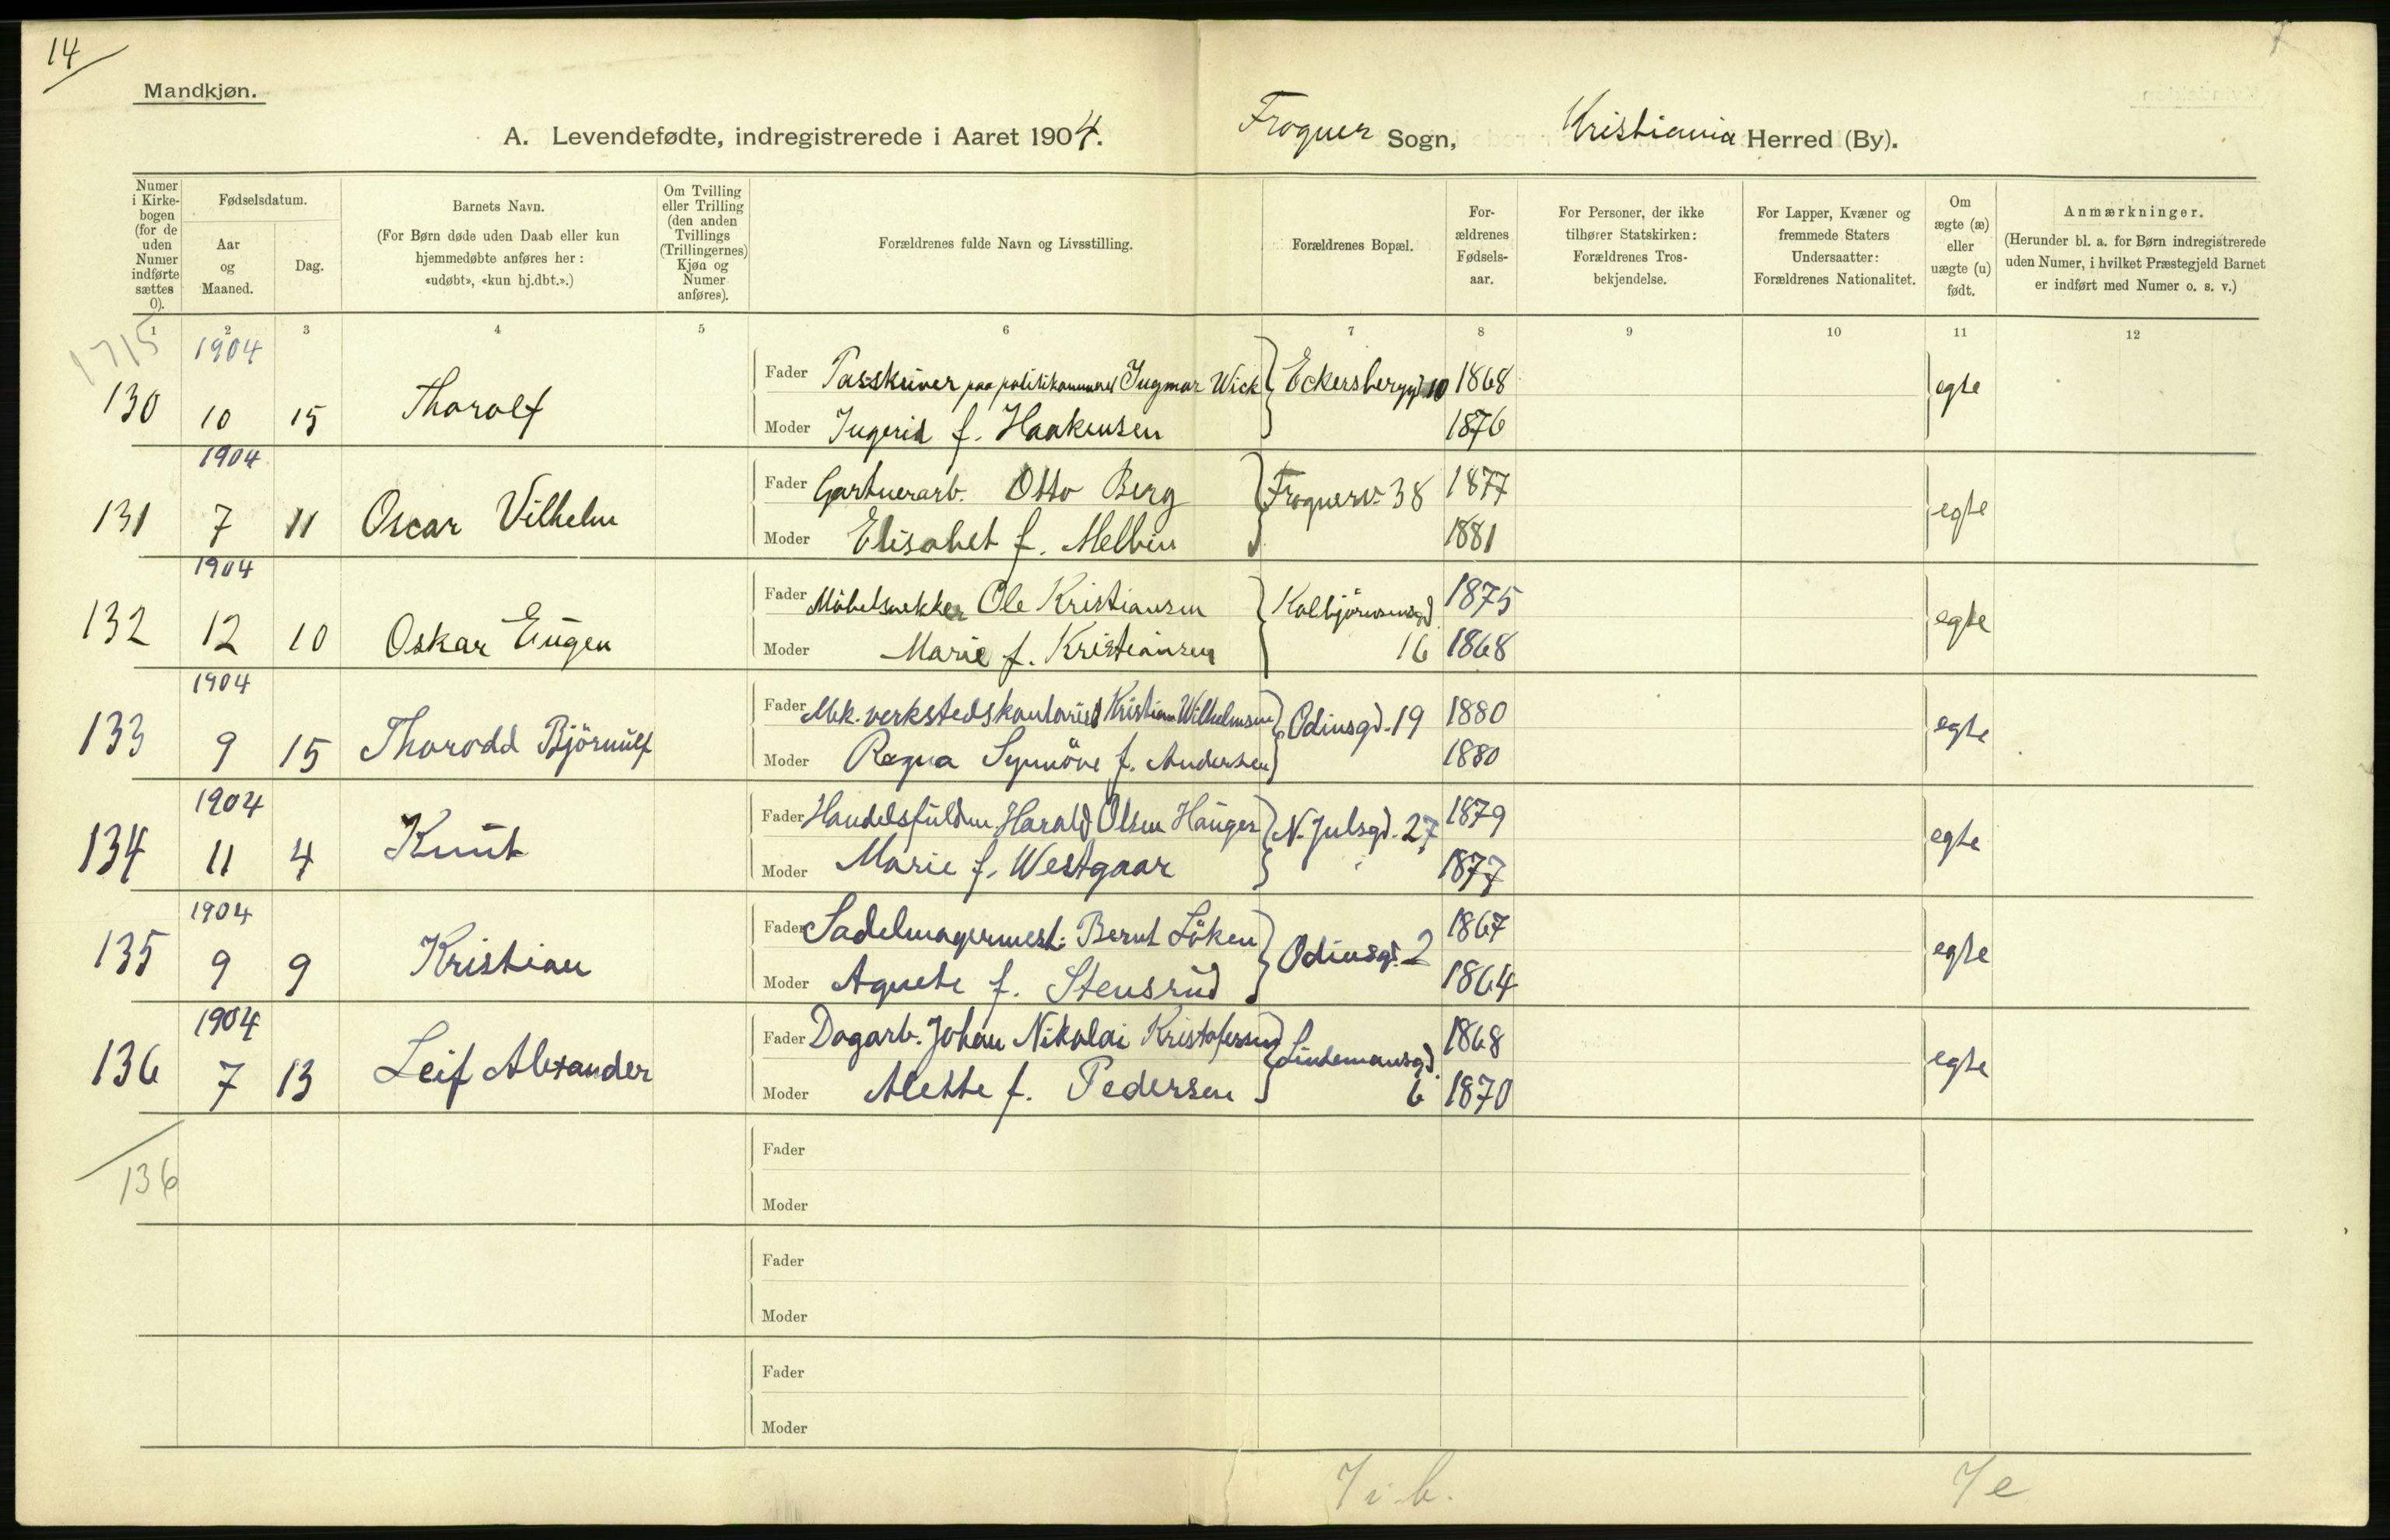 14
7
Mandkjøn.
A. Levendefødte, indregistrerede i Aaret 1904. Frogner Sogn, Kristiania Herred (By).
Numer i Kirkebogen (for de uden Numer indførte sættes 0).
Fødselsdatum.
Aar og Maaned.
Dag.
Barnets Navn.
(For Børn døde uden Daab eller kun hjemmedøbte anføres her: «udøbt», «kun hj.dbt.».)
Om Tvilling eller Trilling (den anden Tvillings (Trillingernes) Kjøn og Numer anføres).
Forældrenes fulde Navn og Livsstilling.
Forældrenes Bopæl.
For-ældrenes Fødsels-aar.
For Personer, der ikke tilhører Statskirken: Forældrenes Tros-bekjendelse.
For Lapper, Kvæner og fremmede Staters Undersaatter: Forældrenes Nationalitet.
Om ægte (æ) eller uægte (u) født.
Anmærkninger.
(Herunder bl. a. for Børn indregistrerede uden Numer, i hvilket Præstegjeld Barnet er indført med Numer o. s. v.)
1 2 3 4 5 6 7 8 9 10 11 12
1715
1904
130 10 15 Thorolf Fader Passkriver paa politikammeret Ingmar Wick Eckersbergd 10 1868 egte
Moder Ingerid f. Haakensen 1876
1904
131 7 11 Oscar Vilhelm Fader Gartnerarb. Otto Berg Frognerv. 38 1877 egte
Moder Elisabet f. Melbin 1881
1904
132 12 10 Oskar Eugen Fader Möbelsnekker Ole Kristiansen Kolbjörnsensgd 1875 egte
Moder Marie f. Kristiansen 16 1868
1904
133 9 15 Thorodd Björnulf Fader Mek. verkstedskontorist Kristian Wilhelmsen Odinsgd. 19 1880 egte
Moder Ragna Synnöve f. Andersen 1880
1904
134 11 4 Knut Fader Handelsfuldm. Harald Olsen Hauger N. Julsgd. 27 1879 egte
Moder Marie f. Westgaar 1877
1904
135 9 9 Kristian Fader Sadelmagermest: Bernt Löken Odinsgd. 2 1867 egte
Moder Agnete f. Stensrud 1864
1904
136 7 13 Leif Alexander Fader Dagarb. Johan Nikolai Kristofersen Lindemansgd. 1868 egte
Moder Alette f. Pedersen 6 1870
136
Fader
Moder
Fader
Moder
Fader
Moder
7 i b.
7 e